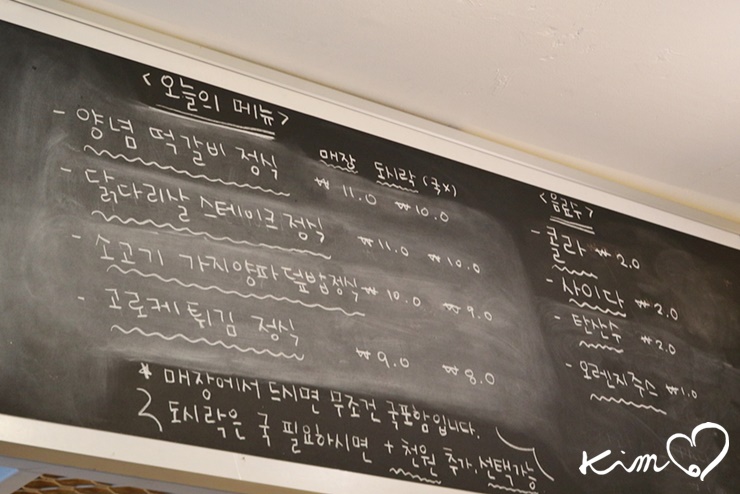 <오늘의 메뉴>
매장 도시락(국X)
- 양념 떡갈비 정식 ₩11.0 ₩10.0
- 닭다리살 스테이크 정식 ₩11.0 ₩10.0
- 소고기 가지양파덮밥정식 ₩10.0 ₩9.0
- 고로케 튀김 정식 ₩9.0 ₩8.0
* 매장에서 드시면 무조건 국포함입니다.
도시락은 국 필요하시면 + 천원 추가.선택가능
<음료수>
- 콜라 ₩2.0
- 사이다 ₩2.0
- 탄산수 ₩2.0
- 오렌지주스 ₩1.0
Kim